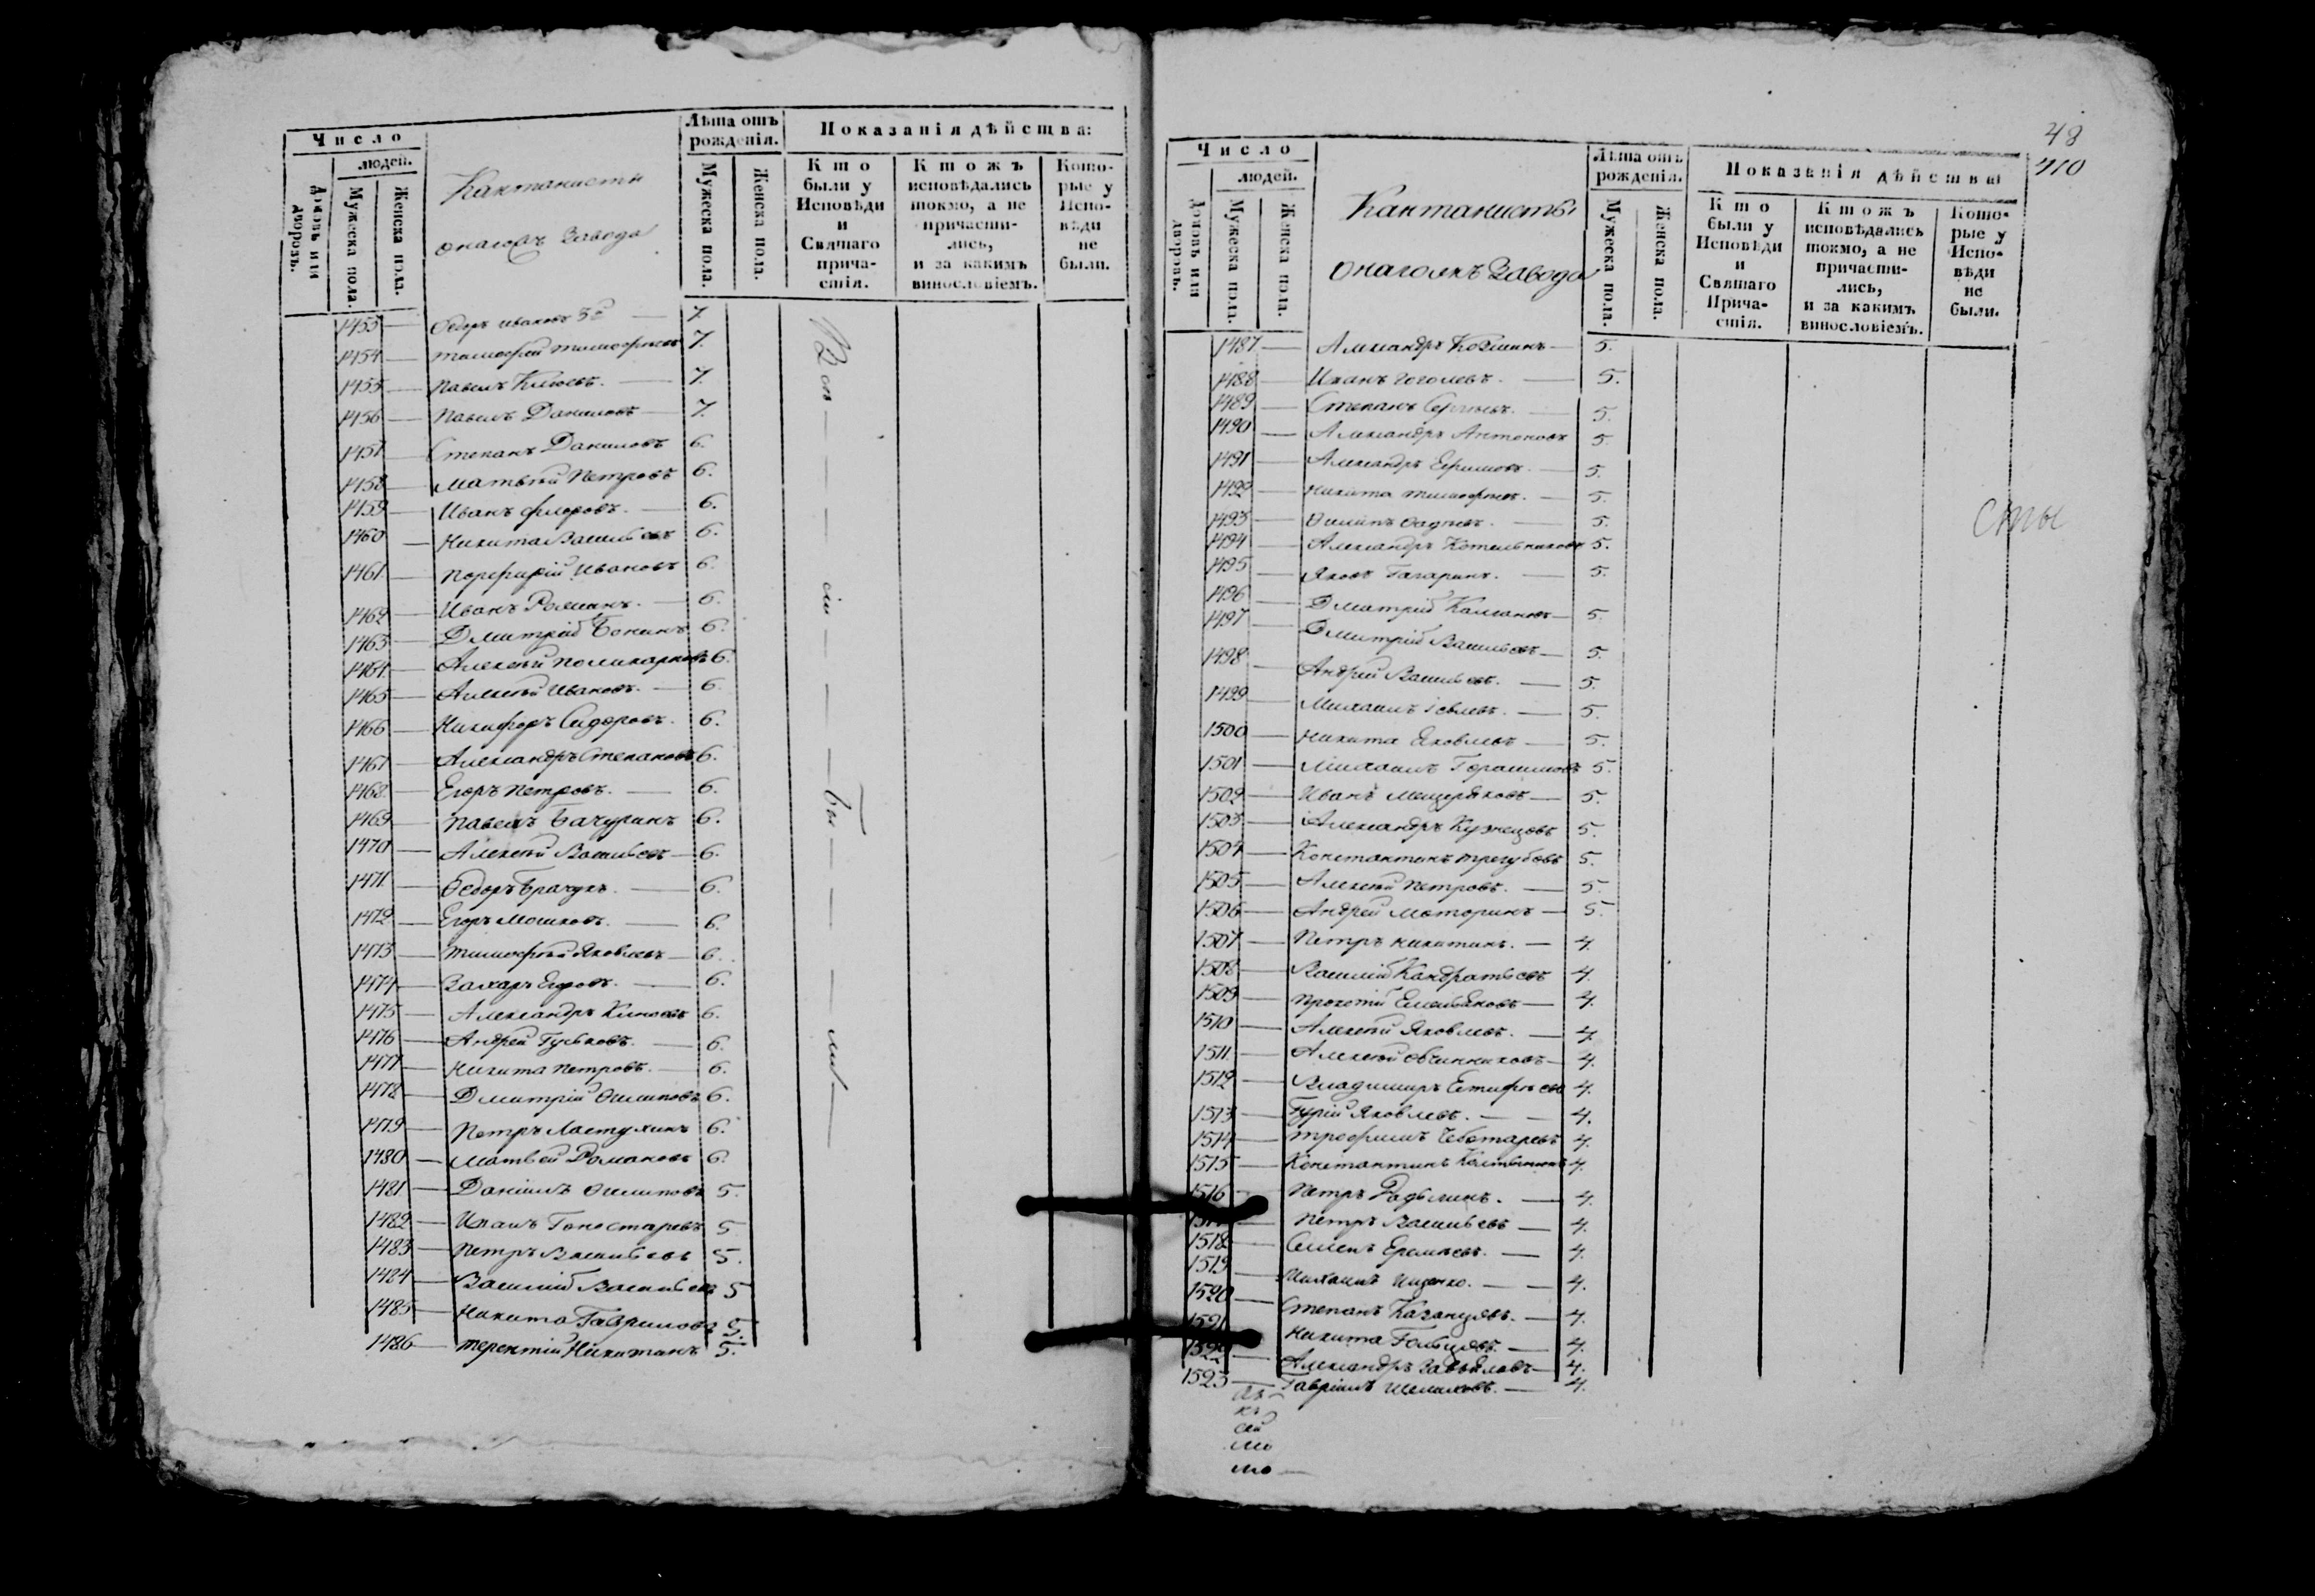 Число
людей.
Домовъ или дворовъ.
Мужеска пола.
Женска пола.
Кантанисты
онагожъ завода
Лѣта отъ рожденія.
Мужеска пола.
Женска пола.
Показанія дѣйства:
Кто были у Исповѣди и Святаго причастія.
Ктожъ исповѣдались токмо, а не причастились, и за какимъ винословіемъ.
Которые у Исповѣди не были.
1453 — Ѳедоръ Ивановъ 3й — 7.
1454 — Тимофей Тимофѣевъ 7.
1455 — Павелъ Клюевъ. — 7.
1456 — Павелъ Даниловъ — 7.
1457 — Степанъ Даниловъ 6.
1458 — Матвѣй Петровъ 6.
1459 — Иванъ Флоровъ. — 6.
1460 — Никита Васильевъ 6.
1461 — Порфирій Ивановъ 6.
1462 — Иванъ Роминъ. — 6.
1463 — Дмитрій Бокинъ 6.
1464 — Алексѣй Поликарповъ 6.
1465 — Алексѣй Ивановъ. — 6.
1466 — Никифоръ Сидоровъ. 6.
1467 — Александръ Степановъ 6.
1468 — Егоръ Петровъ. — 6.
1469 — Павелъ Бачуринъ 6.
1470 — Алексѣй Васильевъ — 6.
1471 — Ѳедоръ — 6.
1472 — Егоръ Мошковъ. — 6.
1473 — Тимофей Яковлевъ — 6.
1474 — Захаръ Егоровъ. — 6.
1475 — Александръ 6.
1476 — Андрей Гуськовъ. — 6.
1477 — Никита Петровъ. — 6.
1478 — Дмитрій Осиповъ 6.
1479 — Петръ Ластухинъ 6.
1480 — Матвей Романовъ 6.
1481 — Даніилъ Осиповъ 5.
1482 — Иванъ Гоностаревъ 5
1483 — Петръ Васильевъ 5.
1484 — Василій Васильевъ 5
1485 — Никита Гавриловъ 5.
1486 — Терентій Никитинъ 5.
48
410
Число
людей.
Домовъ или дворовъ.
Мужеска пола.
Женска пола.
Кантанисты
онагожъ завода
Лѣта отъ рожденія.
Мужеска пола.
Женска пола.
Показанія дѣйства:
Кто были у Исповѣди и Святаго Причастія.
Ктожъ исповѣдались токмо, а не причастились, и за какимъ винословіемъ.
Которые у Исповѣди не были.
1487 — Александръ — 5.
1488 — Иванъ Гоголевъ. — 5.
1489 — Степанъ Сергѣевъ. — 5.
1490 — Александръ Антоновъ 5.
1491 — Александръ Ефимовъ. — 5.
1492 — Никита Тимофѣевъ. — 5.
1493 — Осипъ — 5.
1494 — Александръ Котельниковъ 5.
1495 — Яковъ Гагаринъ. — 5.
1496 — Дмитрій — 5.
1497 — Дмитрій Васильевъ — 5.
1498 — Андрей Васильевъ. — 5.
1499 — Михаилъ — 5.
1500 — Никита Яковлевъ — 5.
1501 — Михаилъ Герасимовъ 5.
1502 — Иванъ Мещеряковъ — 5.
1503 — Александръ Кузнецовъ 5.
1504 — Константинъ Трегубовъ 5.
1505 — Алексѣй Петровъ. — 5.
1506 — Андрей Моторинъ — 5.
1507 — Петръ Никитинъ. — 4.
1508 — Василій Кандратьевъ 4.
1509 — Прокотій Емельяновъ — 4.
1510 — Алексѣй Яковлевъ. — 4.
1511 — Алексѣй Овчинниковъ — 4.
1512 — Владимиръ Евтифѣевъ 4.
1513 — Гурій Яковлевъ. — 4.
1514 — Трофимъ Чеботаревъ 4.
1515 — Константинъ 4.
1516 — Петръ — 4.
Петръ Васильевъ — 4.
1518 — Семенъ Еремѣевъ. — 4.
1519 — Михаилъ Ищенко. — 4.
1520 — Степанъ Казанцовъ. — 4.
1521 Никита Гольцовъ. — 4.
1522 — Александръ Завьяловъ — 4.
1523 — Гавріилъ Шелиховъ. — 4.